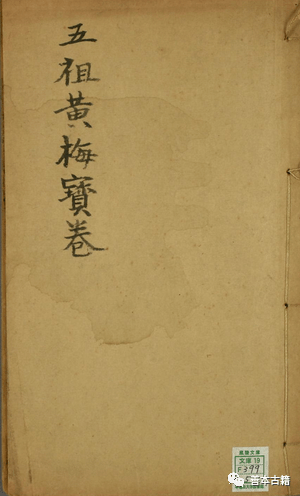 五祖黃梅寶卷
風陵文庫
文庫19
F399
善本古籍